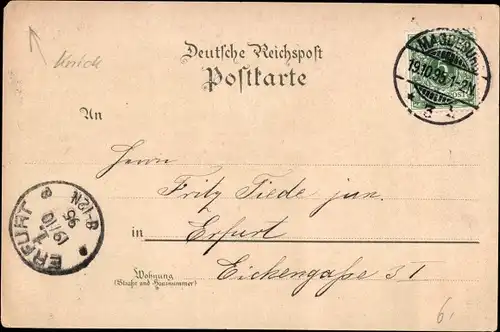 Deutsche Reichspost
Postkarte
MAGDEBURG
19.10.96.1-2N
* 5 *
An
Herrn
Fritz Tiede jun.
in Erfurt
Wohnung
(Straße und Hausnummer)
Eickengaße 3 I
ERFURT
1
19/10
96
8-12N
6.